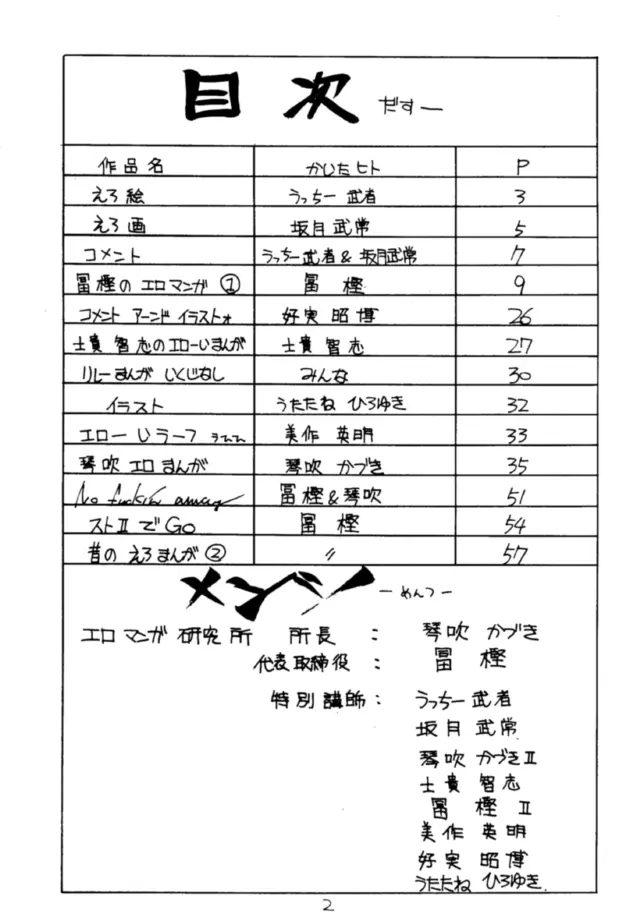 目次 だすー
作品名 かいたヒト P
えろ絵 うっちー武者 3
えろ画 坂月武常 5
コメント うっちー武者&坂月武常 7
冨樫のエロマンガ① 冨樫 9
コメント アーンド イラストォ 好実昭博 26
士貴智志のエローいまんが 士貴智志 27
リレーまんが いくじなし みんな 30
イラスト うたたねひろゆき 32
エロー 美作英明 33
琴吹エロまんが 琴吹かづき 35
No fuckin 冨樫&琴吹 51
ストⅡでGo 冨樫 54
昔のえろまんが② 〃 57
メンツ ーめんつー
エロマンガ研究所 所長: 琴吹かづき
代表取締役: 冨樫
特別講師: うっちー武者
坂月武常
琴吹かづきⅡ
士貴智志
冨樫Ⅱ
美作英明
好実昭博
うたたねひろゆき
2